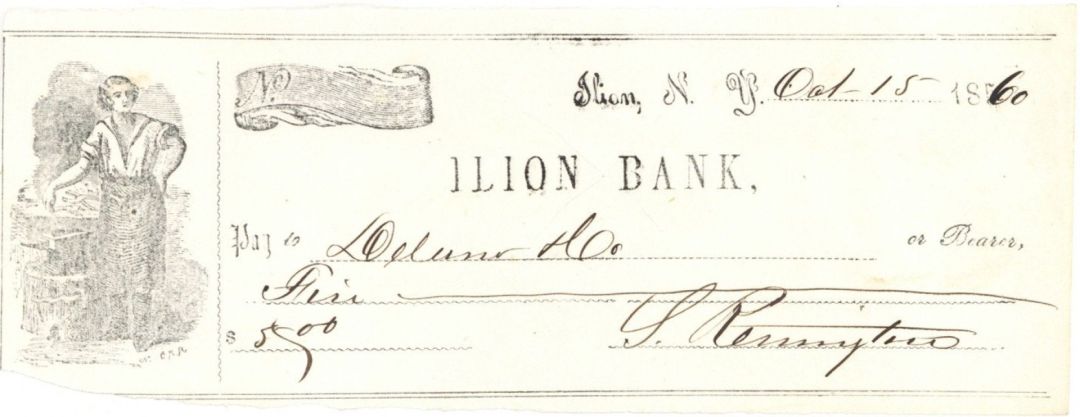 No.
Ilion, N. Y. Oct 15 1860
ILION BANK,
Pay to Delano & Co or Bearer,
Five
$ 5 00
S. Remington